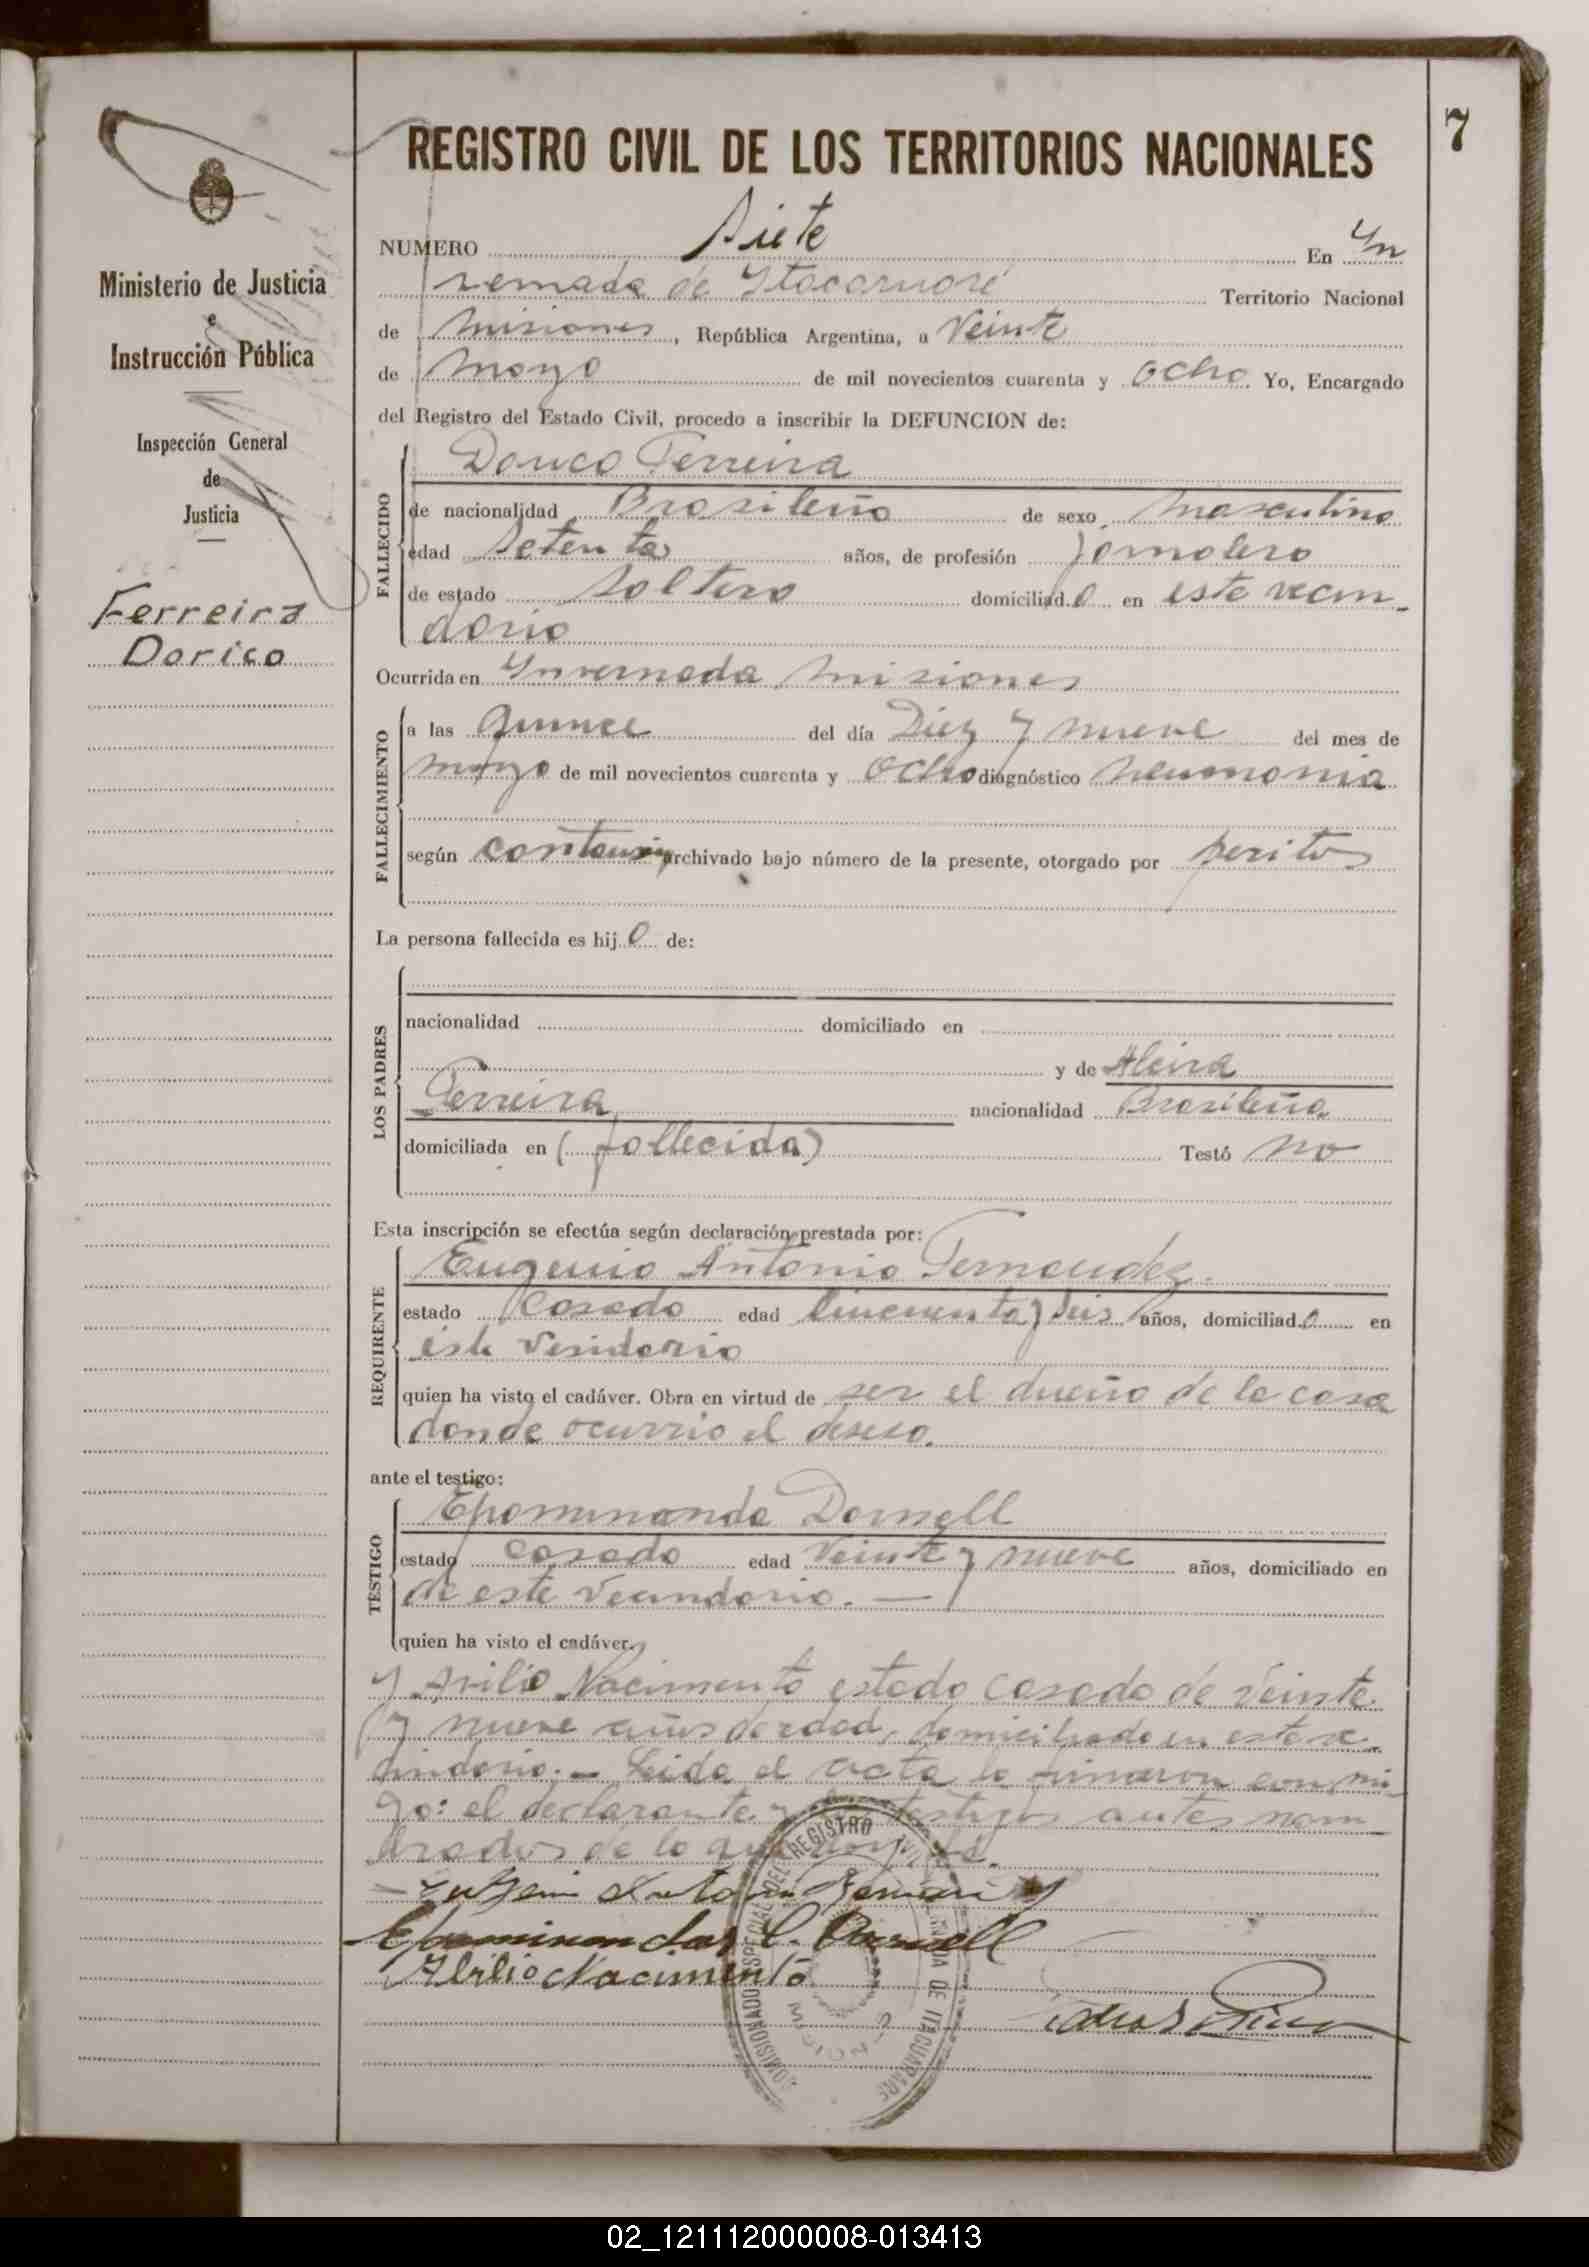 7
REGISTRO CIVIL DE LOS TERRITORIOS NACIONALES
Ministerio de Justicia
e
Instrucción Pública
Inspección General
de
Justicia
Ferreira
Dorico
NUMERO Siete En Yn
vernada de Ytacaruaré Territorio Nacional
de Misiones, República Argentina, a Veinte
de mayo de mil novecientos cuarenta y ocho Yo, Encargado
del Registro del Estado Civil, procedo a inscribir la DEFUNCION de:
FALLECIDO
Dorico Ferreira
de nacionalidad Brasileño de sexo masculino
edad setenta años, de profesión Jornalero
de estado soltero domiciliado en este vecin-
dario
Ocurrida en Ynvernada Misiones
FALLECIMIENTO
a las quince del día Diez y nueve del mes de
mayo de mil novecientos cuarenta y ocho diagnóstico neumonia
según archivado bajo número de la presente, otorgado por peritos
La persona fallecida es hijo de:
LOS PADRES
nacionalidad domiciliado en
y de Alcira
Ferreira nacionalidad Brasileña
domiciliada en (fallecida) Testó no
Esta inscripción se efectúa según declaración prestada por:
REQUIRENTE
Eugenio Antonio Fernandez.
estado Casado edad Cincuenta y seis años, domiciliado en
este Vesindario
quien ha visto el cadáver. Obra en virtud de ser el dueño de la casa
donde ocurrio el deseso.
ante el testigo:
TESTIGO
Epominonda Dornell
estado casado edad Veinte y nueve años, domiciliado en
de este Vecindario. —
quien ha visto el cadáver.
y Avilio Nacimento estado casado de Veinte
y nueve años de edad, domiciliado en este ve-
sindario. — Leida el acta la firmaron conmi-
go: el declarante y los testigos antes nom-
brados de lo que doy fé.
Eugenio Antonio Fernandez
Epominondas C. Dornell
Abilio Nacimento
COMISIONADO ESPECIAL DEL REGISTRO CIVIL DE ITACUARARE
MISIONES
02_121112000008-013413